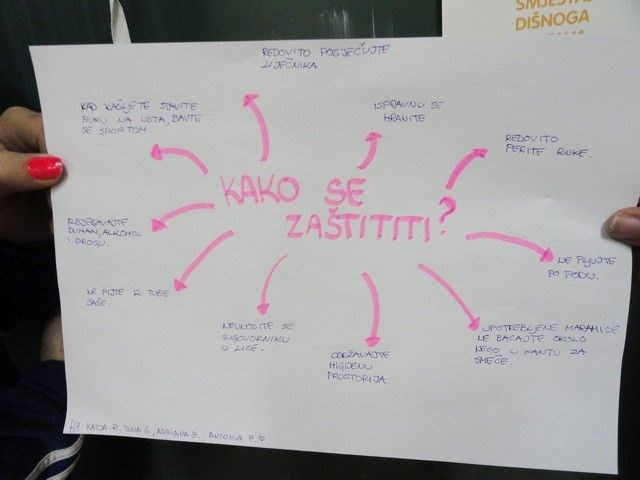 SMJEŠTAJ
DIŠNOGA
REDOVITO POSJEĆUJTE
LIJEČNIKA
KAD KAŠLJETE STAVITE
RUKU NA USTA, BAVITE
SE SPORTOM.
ISPRAVNO SE
HRANITE
REDOVITO
PERITE RUKE.
KAKO SE
ZAŠTITITI?
IZBJEGAVAJTE
DUHAN, ALKOHOL
I DROGU.
NE PLJUJTE
PO PODU.
NE PIJTE IZ TUĐE
ČAŠE.
NEUNOSITE SE
SUGOVORNIKU
U LICE.
ODRŽAVAJTE
HIGIJENU
PROSTORIJA.
UPOTREBLJENE MARAMICE
NE BACAJTE OKOLO
NEGO U KANTU ZA
SMEĆE.
BY KATJA P., DINA G., ADRIANA B., ANTONIA P.